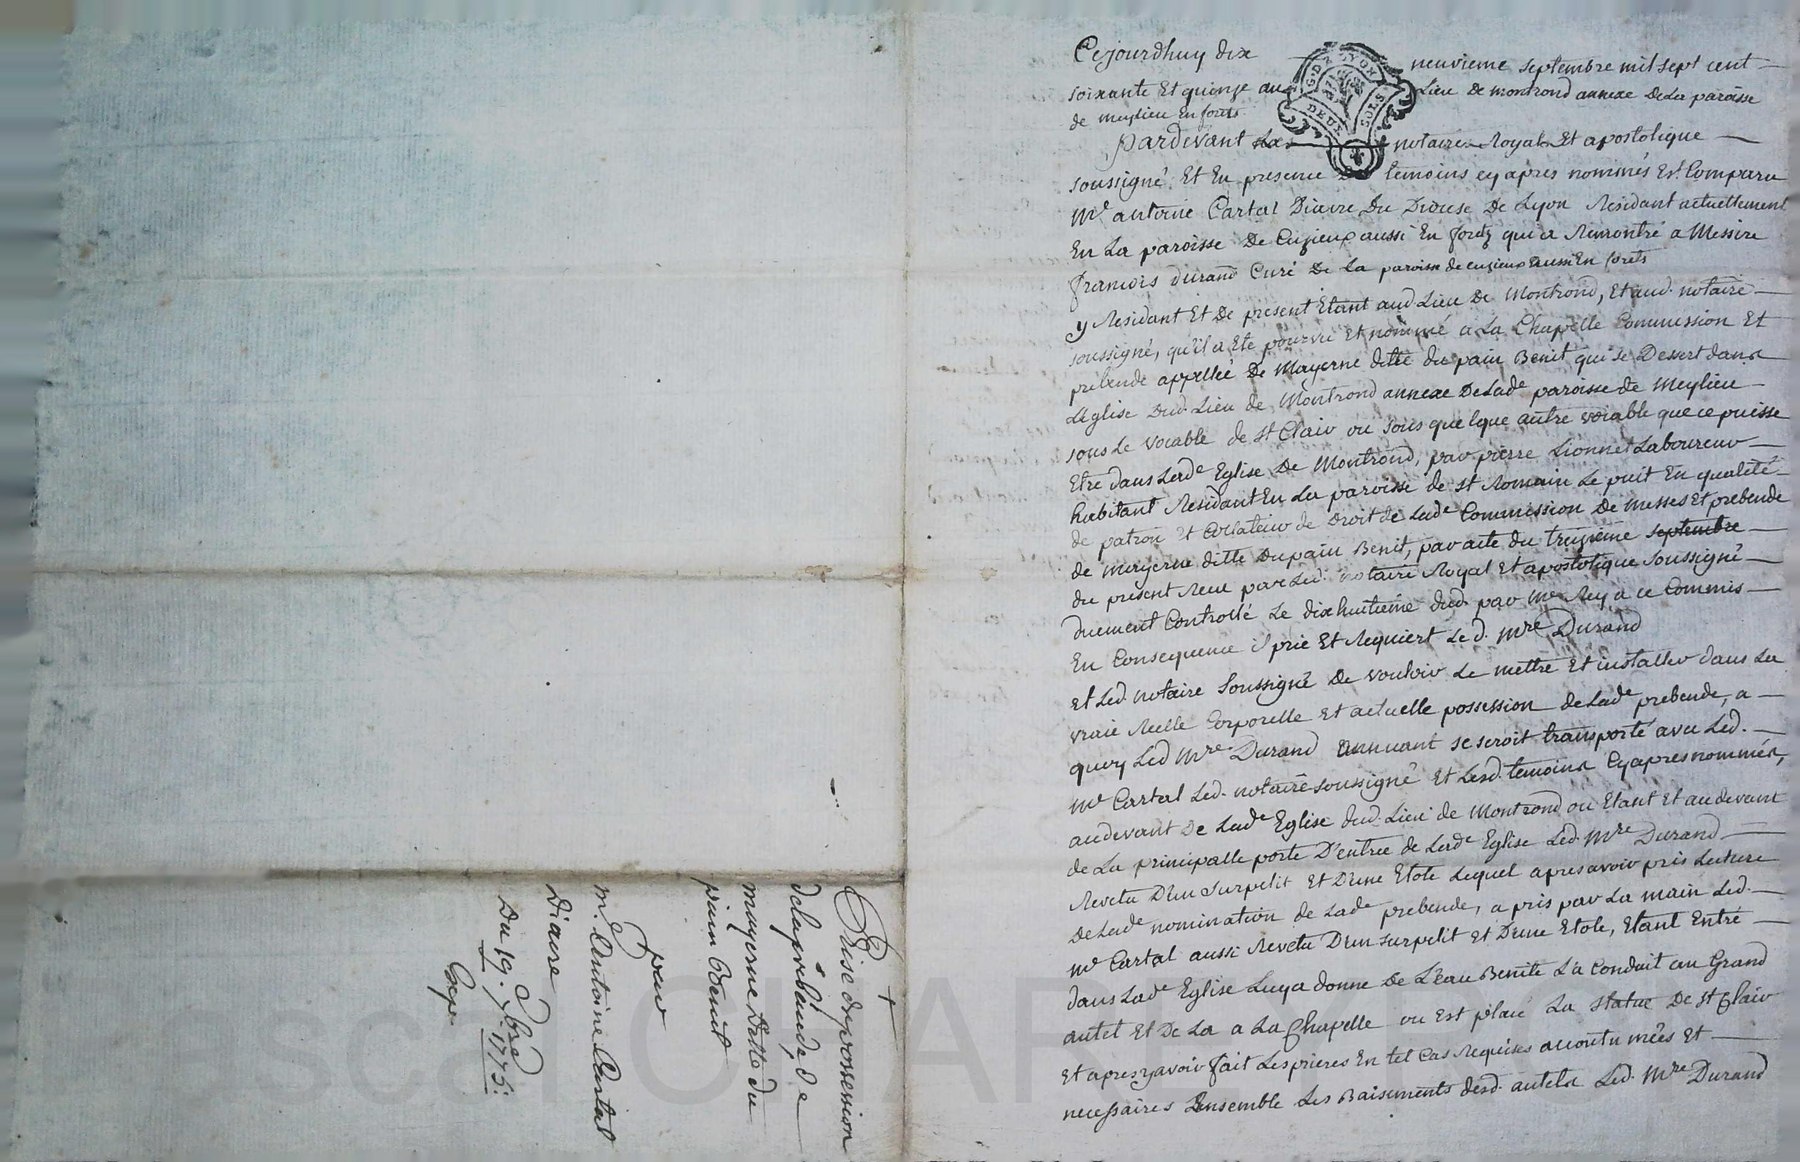 Cejourdhuy dix neuvieme septembre mil sept cent
soixante Et quinze au Lieu de montrond annexe De La paroisse
de meylieu En forets
pardevant Le notaire Royal Et apostolique
soussigné, Et En presence Des temoins cy apres nommés Est Comparu
Mr. antoine Cartal Diacre Du Diocese De Lyon Residant actuellement
En La paroisse De Cuzieux aussi En foretz qui a Remontré a Messire
francois durand Curé De La paroisse de cuzieux aussi En forets
y Residant Et De present Etant aud Lieu De Montrond, Et aud. notaire
soussigné, qu'il a Eté pourvu Et nommé a La Chapelle Commission Et
prebende appellée De Mayerne ditte du pain Benit qui se Desert dans
L'Eglise Dud. Lieu de Montrond annexe De Lade paroisse de Meylieu
sous Le vocable de st Clair ou sous quelque autre vocable que ce puisse
Etre dans Lade Eglise De Montrond, par pierre Lionnet Laboureur
habitant Residant En La paroisse de st Romain Le puit En qualité
de patron Et Collateur de Droit de Lade Commission De messes Et prebende
de mayerne ditte Du pain Benit, par acte du treizieme septembre
du present Reçu par Led. notaire Royal Et apostolique soussigné
duement Controllé Le dix huitieme dud. par Mr Rey a ce Commis
En Consequence il prie Et Requiert Le d. Mre Durand
et Led. notaire soussigné De vouloir Le mettre Et installer dans La
vraie Reelle Corporelle Et actuelle possession de Lade prebende, a
quoy Led Mre Durand annuant se seroit transporté avec Led.
Mr Cartal Led. notaire soussigné Et Lesd. temoins Cy apres nommés,
au devant De Lade Eglise dud. Lieu de Montrond ou Etant Et au devant
de La principalle porte D'entrée de Lade Eglise Led. Mre Durand
Revetu D'un surpelit Et D'une Etole Lequel apres avoir pris Lecture
De Lade nomination de Lade prebende, a pris par La main Led.
Mr Cartal aussi Revetu D'un surpelit Et D'une Etole, Etant Entré
dans Lade Eglise Luy a donne De L'eau Benite L'a Conduit au Grand
autel Et De La a La Chapelle ou Est placé La statue De St Clair
Et apres y avoir fait Les prieres En tel Cas Requises accoutumées Et
necessaires Ensemble Les Baisements desd. autels Led. Mre Durand
+
Prise de possession
de la prebende, de
mayerne Ditte du
pain Benit
pour
m. Antoine Cartal
Diacre
Du 19. 7bre 1775.
Exp.
G.D. LYON
DEUX SOLS
scal CHARTRAS